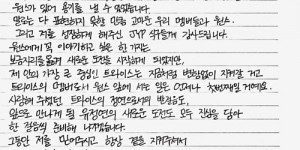 원스가 있어 용기를 낼 수 있었습니다.
말로는 다 표현하지 못할 만큼 고마운 우리 멤버들과 원스,
그리고 저를 성장하게 해주신 JYP 식구들께 감사드립니다.
원스에게 꼭 이야기하고 싶은 한 가지는,
보금자리를 옮겨 새로운 도전을 시작하게 되었지만,
제 안의 가장 큰 중심인 트와이스는 지금처럼 변함없이 지켜갈 거고
트와이스의 멤버로서 원스 앞에 서는 일은 언제나 첫번째일 거예요.
사랑해 주셨던 트와이스의 정연으로서의 발걸음도,
앞으로 만나게 될 유정연의 새로운 도전도 모두 진심을 담아
한 걸음씩 준비해 나가겠습니다.
그동안 저를 믿어주시고 항상 곁을 지켜주셔서